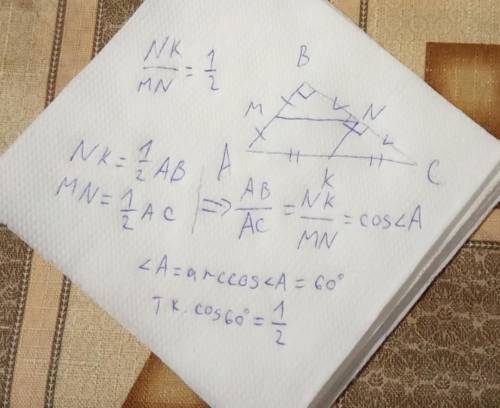 NK/MN = 1/2
B
M
N
A
K
C
NK = 1/2 AB
MN = 1/2 AC
⇒ AB/AC = NK/MN = cos∠A
∠A = arccos∠A = 60°
т.к. cos60° = 1/2